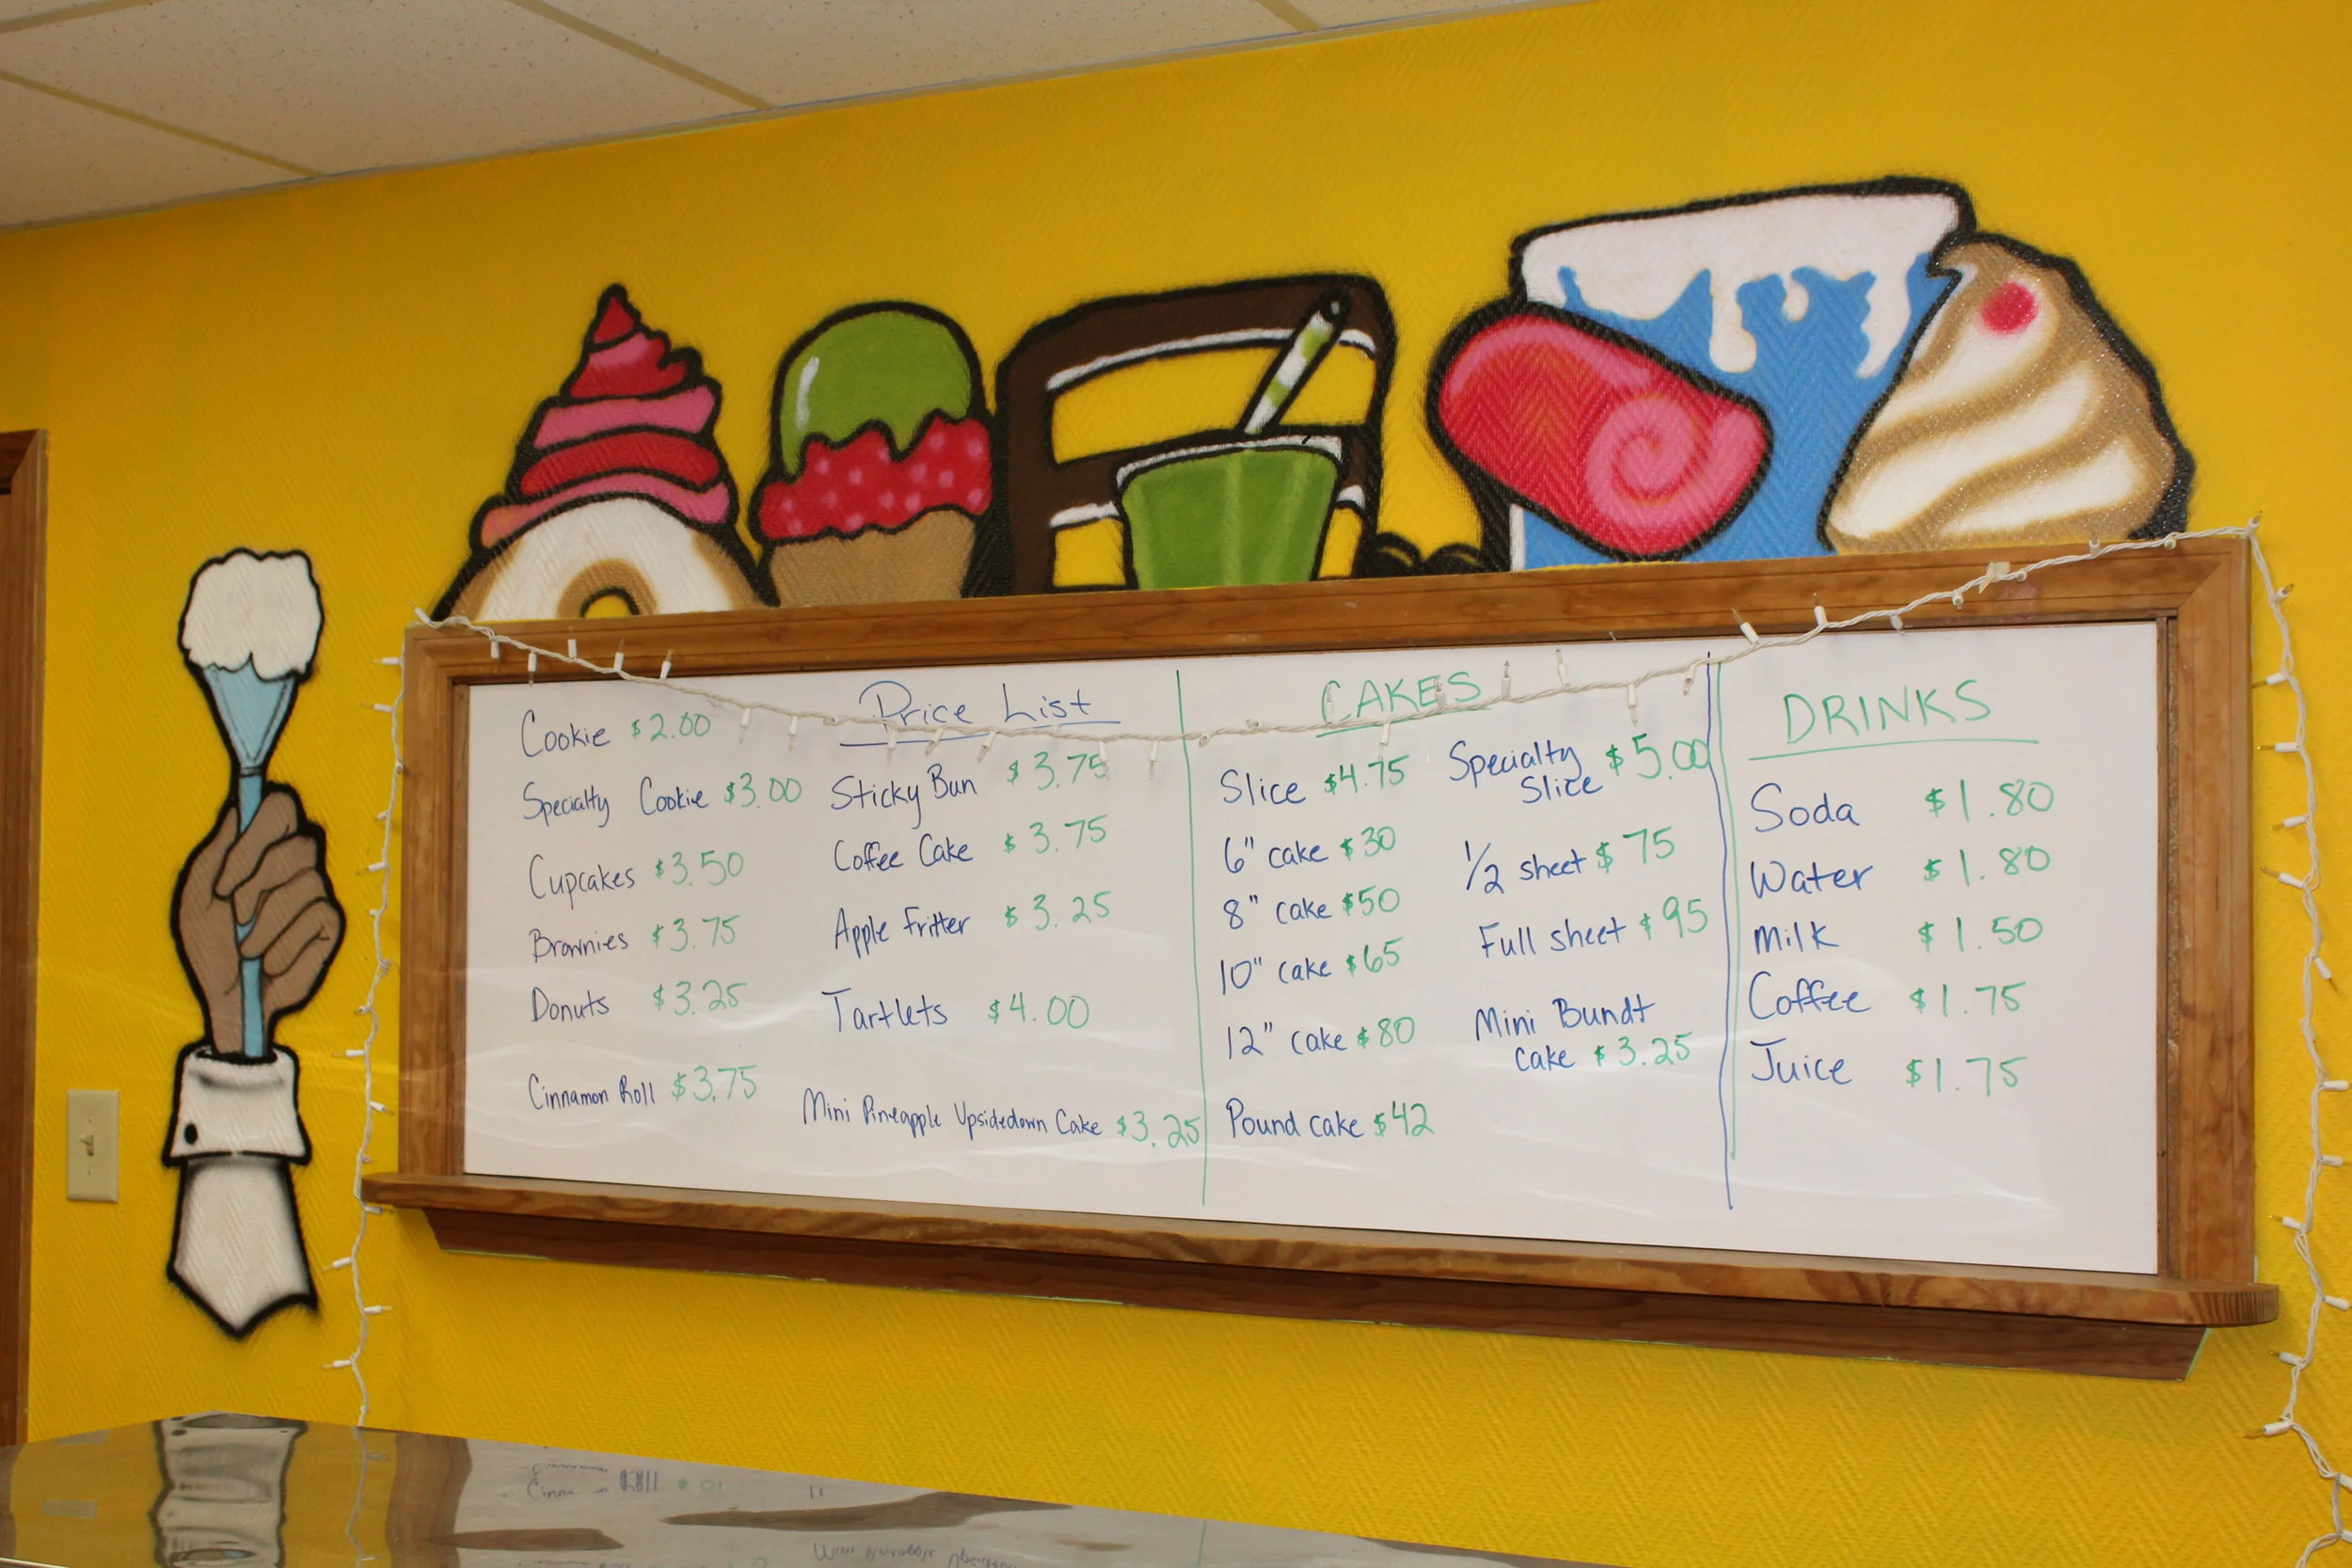 Price List
Cookie $2.00
Specialty Cookie $3.00
Cupcakes $3.50
Brownies $3.75
Donuts $3.25
Cinnamon Roll $3.75
Sticky Bun $3.75
Coffee Cake $3.75
Apple Fritter $3.25
Tartlets $4.00
Mini Pineapple Upsidedown Cake $3.25
CAKES
Slice $4.75
6" cake $30
8" cake $50
10" cake $65
12" cake $80
Pound cake $42
Specialty
Slice $5.00
1/2 sheet $75
Full sheet $95
Mini Bundt
cake $3.25
DRINKS
Soda $1.80
Water $1.80
Milk $1.50
Coffee $1.75
Juice $1.75